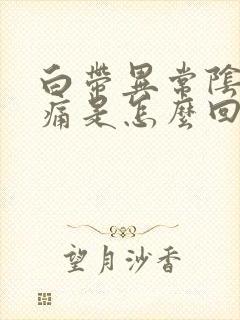 白帶異常陰
痛是怎麼回
望月沙香